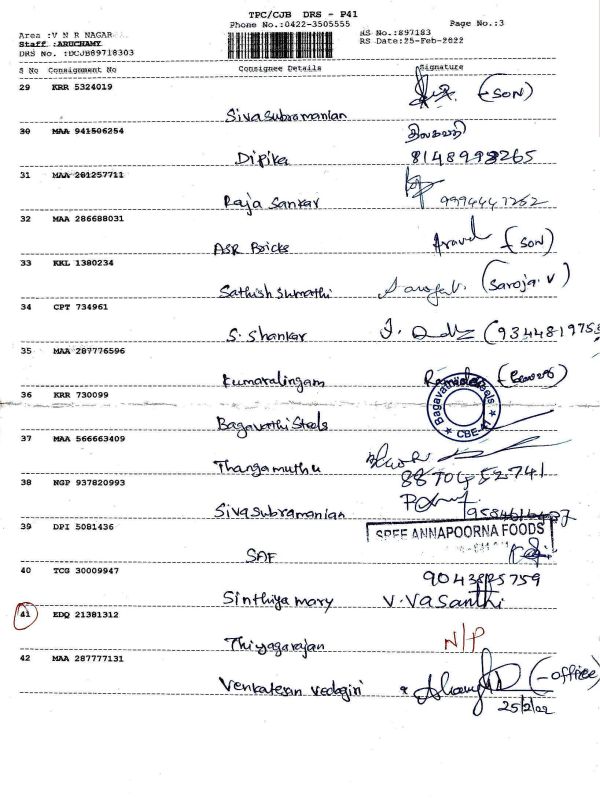 TPC/CJB DRS - P41
Phone No.:0422-3505555 Page No.:3
Area :V N R NAGAR RS No.:897183
Staff :ARUCHAMY RS Date:25-Feb-2022
DRS No. :DCJB89718303
S No Consignment No Consignee Details Signature
29 KRR 5324019
Sivasubramanian (SON)
30 MAA 941506254
Dipika 8148998265
31 MAA 281257711
Raja Sankar 9994447262
32 MAA 286688031
ASR Bricks Aravind (SON)
33 KKL 1380234
Sathish Sumathi (Saroja. V)
34 CPT 734961
S. Shankar (9344819753
35 MAA 287776596
Kumaralingam
36 KRR 730099
Bagavathi Steels Bagavathi Steels CBE
37 MAA 566663409
Thangamuthu
38 NGP 937820993
Sivasubramanian
39 DPI 5081436
SREE ANNAPOORNA FOODS
SAF
40 TCG 30009947
Sinthiya mary V. Vasanthi
41 EDQ 21381312
Thiyagarajan N/P
42 MAA 287777131
Venkatesan Vedagiri (-office)
25/2/22